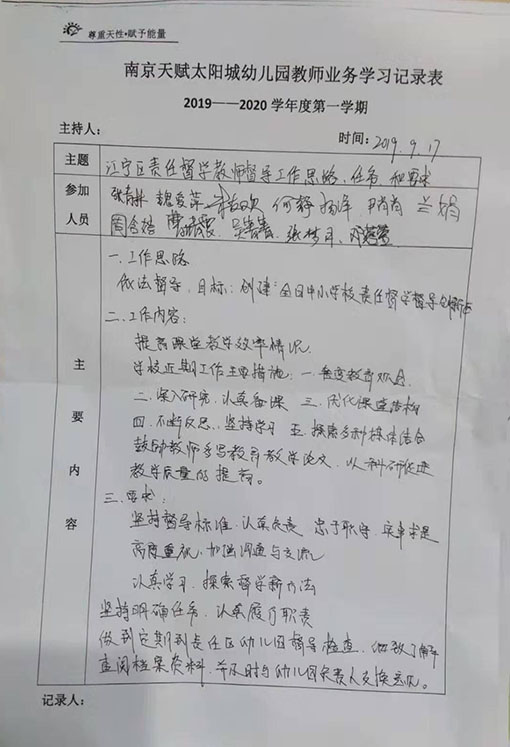 尊重天性•赋予能量
南京天赋太阳城幼儿园教师业务学习记录表
2019——2020 学年度第一学期
主持人：
时间：2019.9.17
主题
江宁区责任督学教师督导工作思路、任务和要求
参加人员
魏爱萍 何静
主要内容
一.工作思路
依法督导，目标：创建全国中小学校责任督学督导创新区
二.工作内容：
提高课堂教学效率情况.
学校近期工作主要措施：一.更变教育观念
二.深入研究，认真备课 三.优化课堂结构
四.不断反思，坚持学习 五.探索多种媒体结合
鼓励教师多写教育教学论文，以科研促进
教学质量的提高。
三.要求：
坚持督导标准，认真负责 忠于职守 实事求是
高度重视，加强沟通与交流
认真学习，探索督学新办法
坚持明确任务，认真履行职责
做到定期到责任区幼儿园督导检查，细致了解
查阅档案资料，并及时与幼儿园负责人交换意见。
记录人：